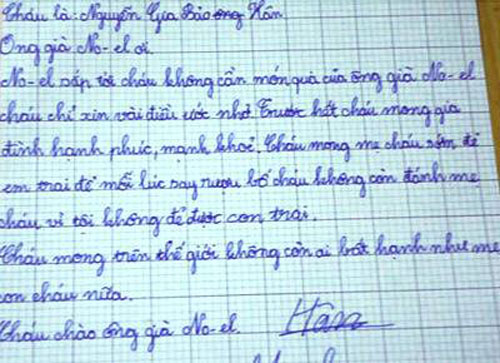 Cháu là: Nguyễn Gia Bảo ong Hân
Ông già No-el ơi.
No-el sắp tới cháu không cần món quà của ông già No-el
cháu chỉ xin vài điều ước nhỏ. Trước hết cháu mong gia
đình hạnh phúc, mạnh khoẻ. Cháu mong mẹ cháu sớm đẻ
em trai để mỗi lúc say rượu bố cháu không còn đánh mẹ
cháu vì tội không đẻ được con trai.
Cháu mong trên thế giới không còn ai bất hạnh như mẹ
con cháu nữa.
Cháu chào ông già No-el. Hân